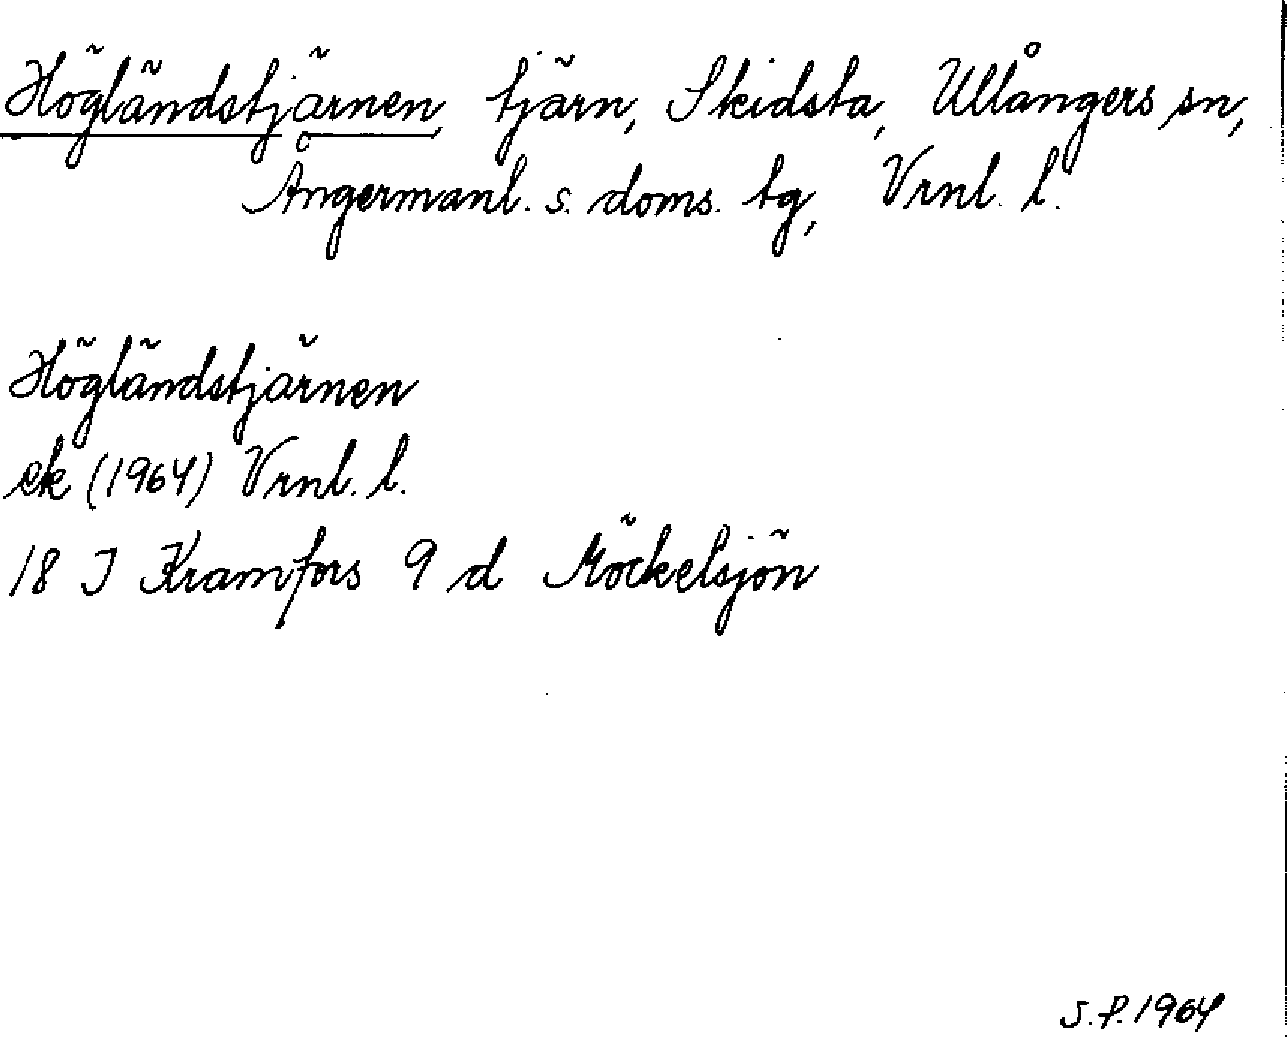 Högländstjärnen, tjärn, Skidsta, Ullångers sn,
Ångermanl. s. doms. tg, Vrnl. l.
Högländstjärnen
ek (1964) Vrnl. l.
18 J Kramfors 9 d Möckelsjön
S.P. 1964